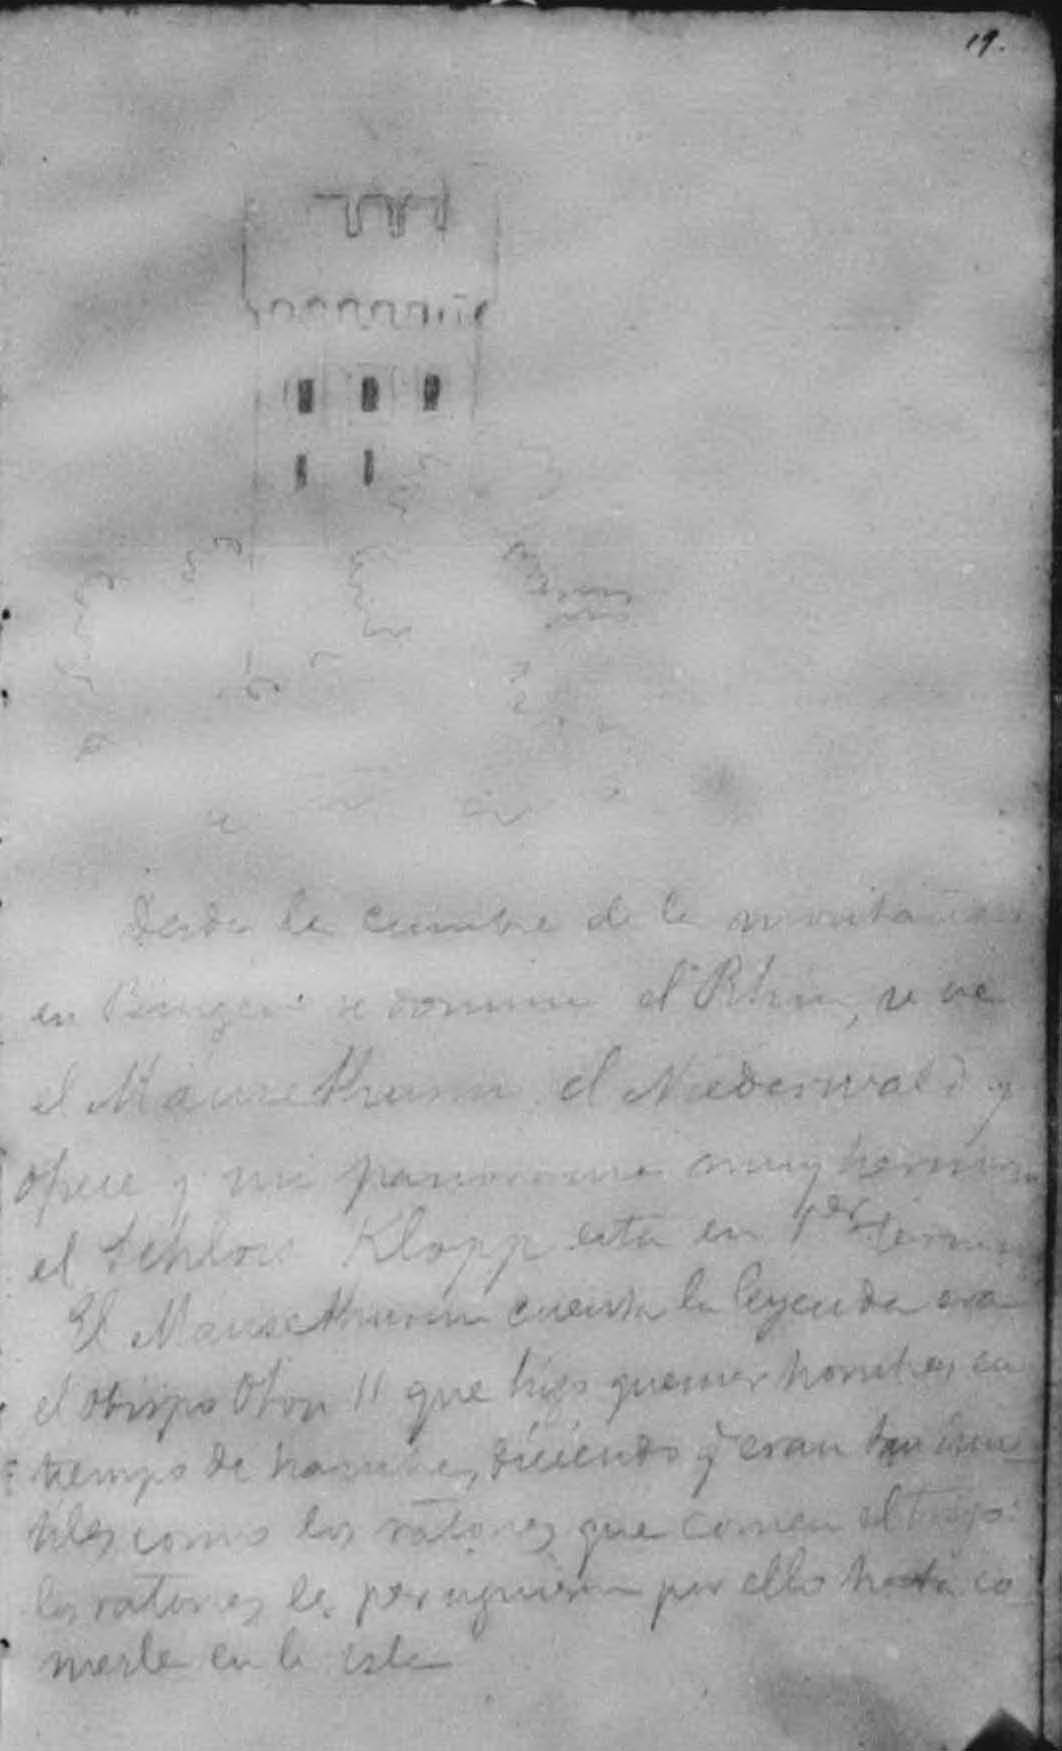 19.
Desde la cumbre de la montaña
en Bingen se domina el Rhin, se ve
el Mäusethurm el Niederwald y
ofrece y un panorama muy hermoso
el Schloss Klopp esta en 1er termin
El Mausethurm cuenta la leyenda era
el obispo Oton II que hizo quemar hombres en
tiempo de hambre, diciendo q̃ eran tan inu
tiles como los ratones que comen el trigo:
los ratones le persiguieron por ello hasta co
merle en la isla